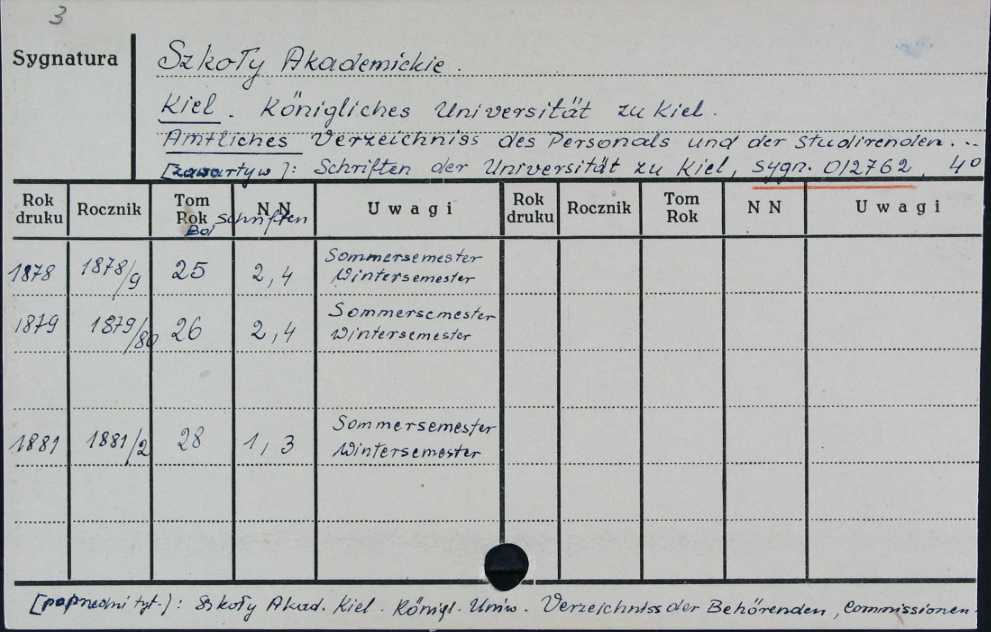 3
Sygnatura
Szkoły Akademickie.
Kiel. Königliches Universität zu Kiel.
Amtliches Verzeichniss des Personals und der Studirenden...
[zawarty w]: Schriften der Universität zu Kiel, sygn. 012762, 4°
Rok druku Rocznik Tom Rok NN Uwagi Rok druku Rocznik Tom Rok NN Uwagi
Schriften
1878 1878/9 25 2,4 Sommersemester
Wintersemester
1879 1879/80 26 2,4 Sommersemester
Wintersemester
1881 1881/2 28 1,3 Sommersemester
Wintersemester
[poprzedni tyt.]: Szkoły Akad. Kiel. Königl. Uniw. Verzeichniss der Behörenden, Commissionen.